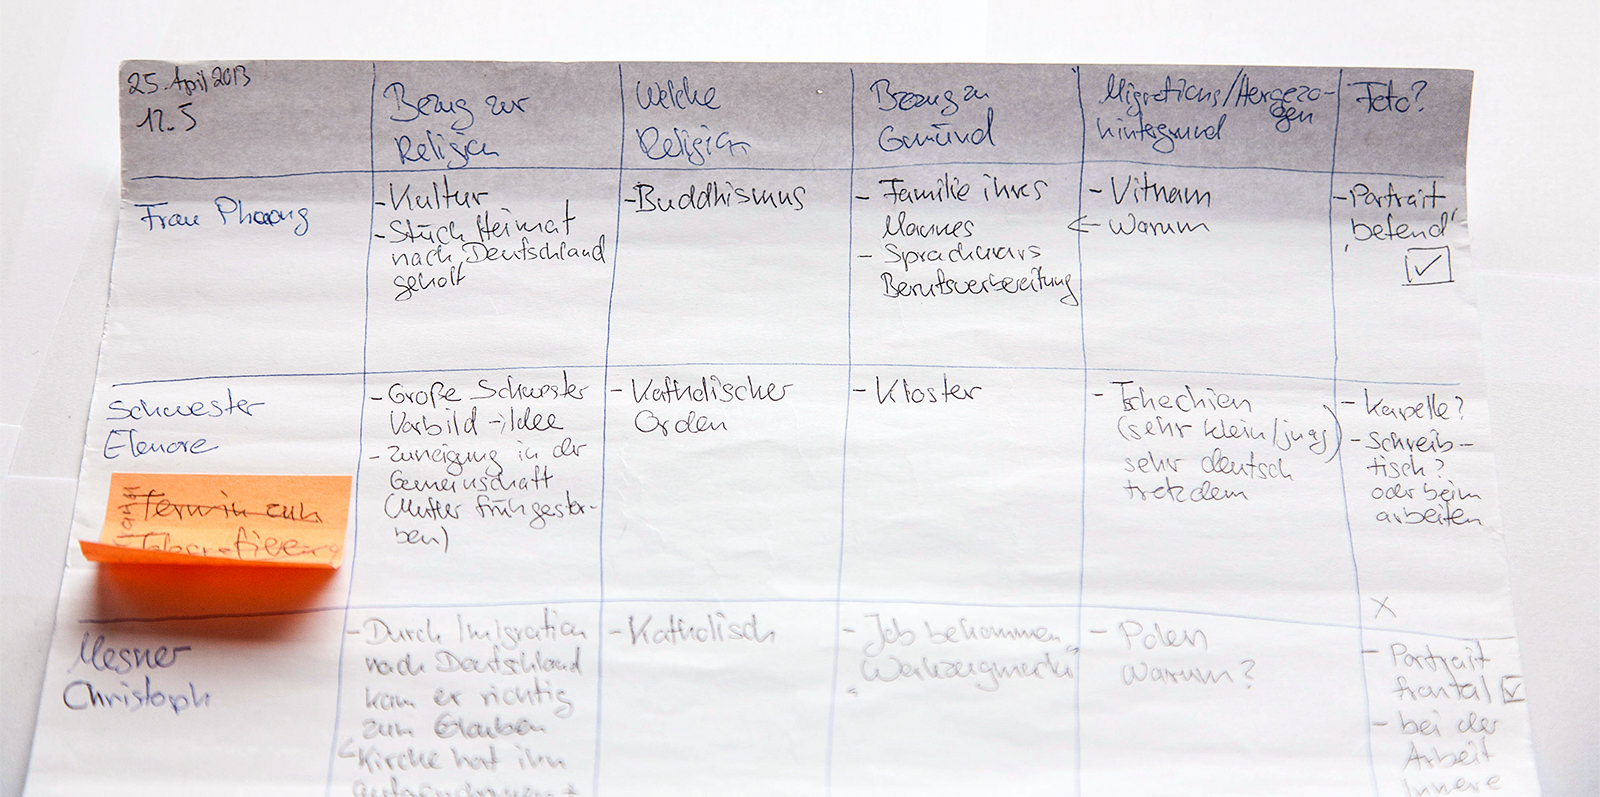 25. April 2013
12.5
Bezug zur
Religion
Welche
Religion
Bezug zu
Gmünd
Migrations/Hergezo-
gen
hintergrund
Foto?
Frau Phaong
- Kultur
- Stück Heimat
nach Deutschland
geholt
- Buddhismus
- Familie ihres
Mannes
- Sprachkurs
Berufsvorbereitung
- Vitnam
- Warum
- Portrait
"betend"
Schwester
Elenore
- Große Schwester
Vorbild → Idee
- Zuneigung in der
Gemeinschaft
(Mutter früh gestor-
ben)
- Katholischer
Orden
- Kloster
- Tschechien
(sehr klein/jung)
sehr deutsch
trotzdem
- Kapelle?
- Schreib-
tisch?
oder beim
arbeiten
Termin zum
Fotografieren
x
Mesner
Christoph
- Durch Imigration
nach Deutschland
kam er richtig
zum Glauben
- Kirche hat ihn
aufgenommen +
- Katholisch
- Job bekommen
- Polen
Warum?
- Portrait
frontal
- bei der
Arbeit
Innere